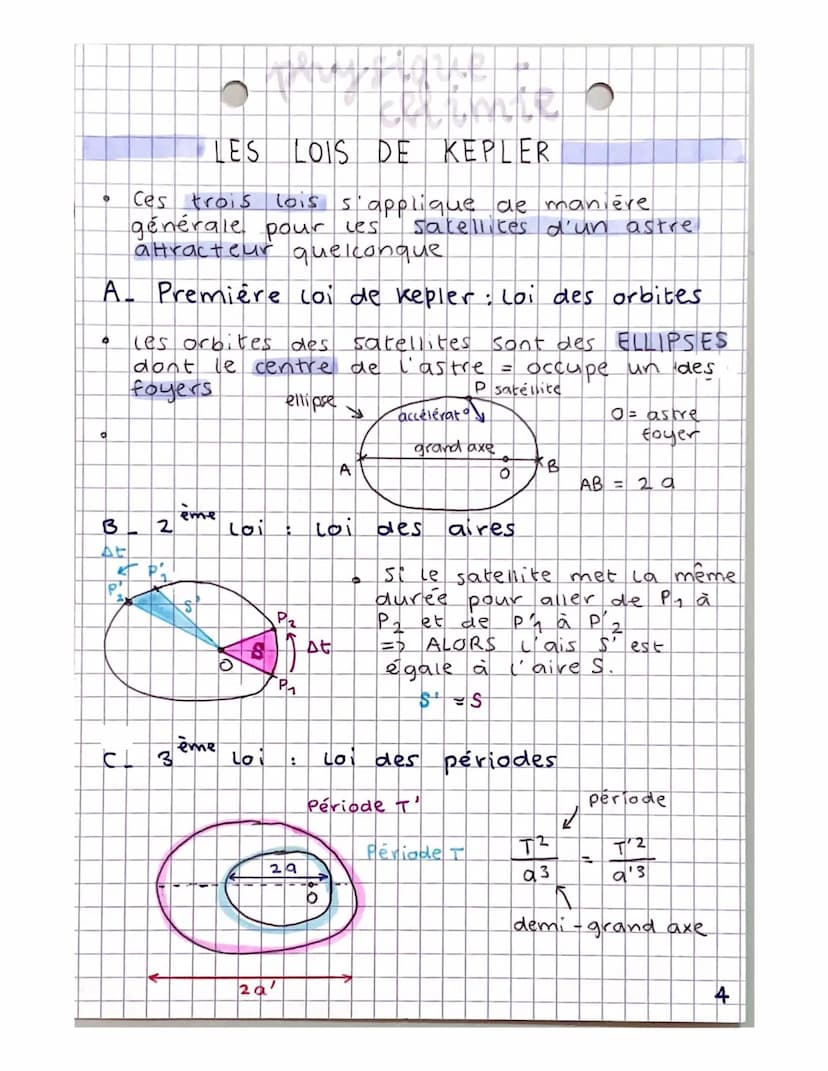 physique -
chimie
LES LOIS DE KEPLER
• Ces trois lois s'applique de manière
générale pour les satellites d'un astre
attracteur quelconque
A_ Première loi de kepler : loi des orbites
• les orbites des satellites sont des ELLIPSES
dont le centre de l'astre = occupe un des
foyers
P satéllite
ellipse
accélérat°
O = astre
foyer
grand axe
A
O
B
AB = 2a
B_ 2ème loi : loi des aires
Δt
P'1
P'2
S'
P2
S
Δt
O
P1
• Si le satellite met la même
durée pour aller de P1 à
P2 et de P'1 à P'2
=> ALORS l'ais S' est
égale à l'aire S.
S' = S
C_ 3ème loi : loi des périodes
Période T'
période
Période T
T² / a³ = T'² / a'³
2a
O
demi-grand axe
2a'
4